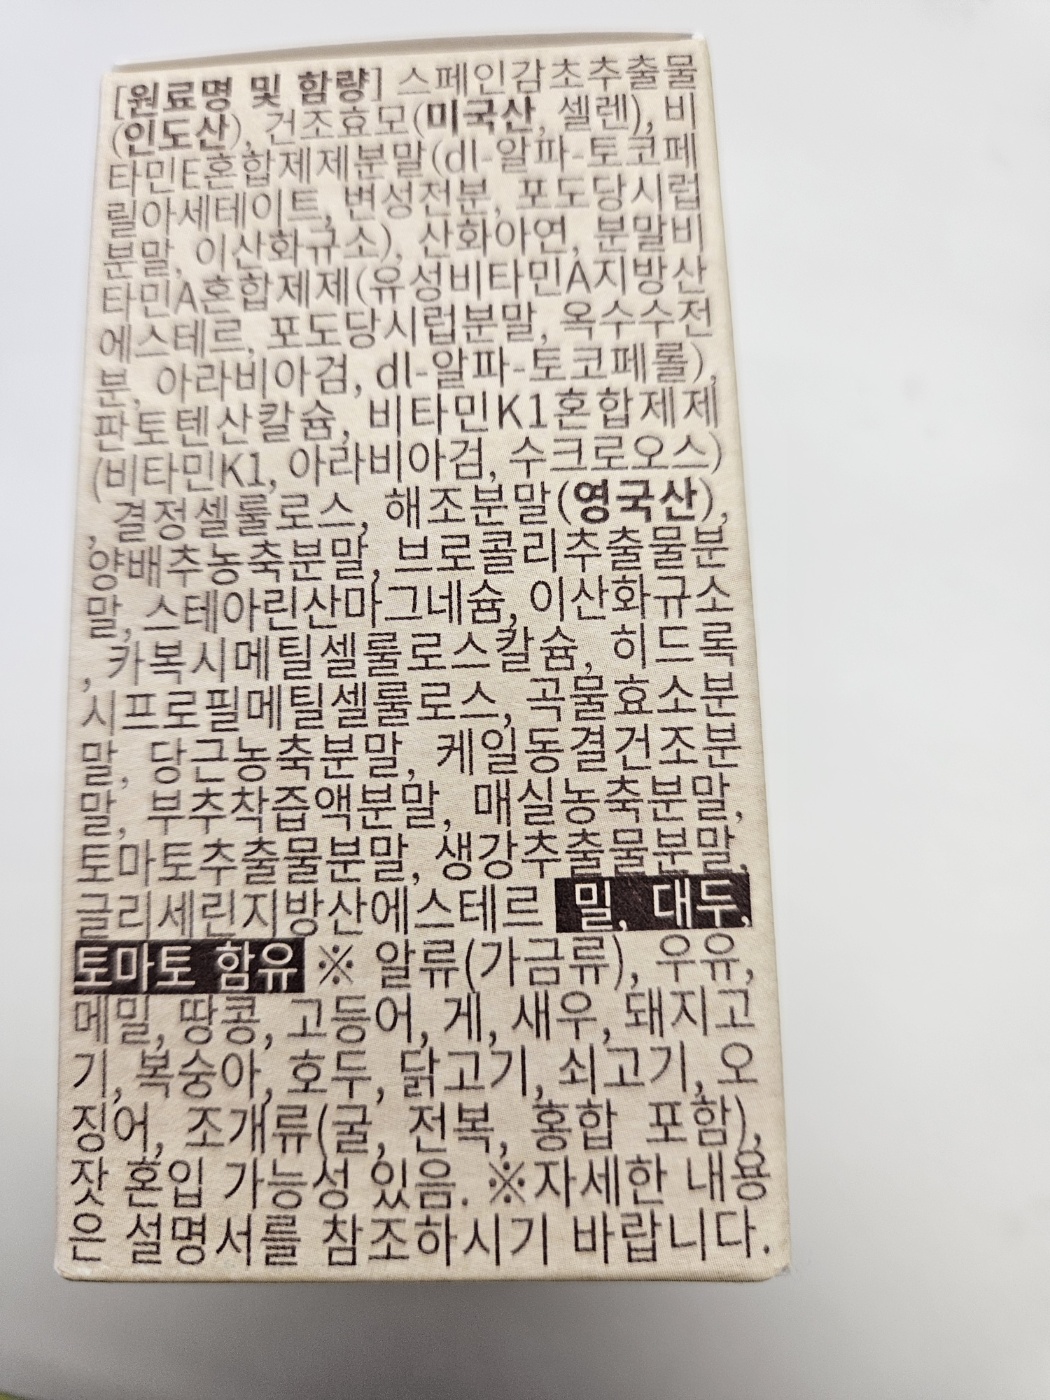 [원료명 및 함량] 스페인감초추출물
(인도산), 건조효모(미국산, 셀렌), 비
타민E혼합제제분말(dl-알파-토코페
릴아세테이트, 변성전분, 포도당시럽
분말, 이산화규소), 산화아연, 분말비
타민A혼합제제(유성비타민A지방산
에스테르, 포도당시럽분말, 옥수수전
분, 아라비아검, dl-알파-토코페롤),
판토텐산칼슘, 비타민K1혼합제제
(비타민K1, 아라비아검, 수크로오스)
, 결정셀룰로스, 해조분말(영국산),
양배추농축분말, 브로콜리추출물분
말, 스테아린산마그네슘, 이산화규소
, 카복시메틸셀룰로스칼슘, 히드록
시프로필메틸셀룰로스, 곡물효소분
말, 당근농축분말, 케일동결건조분
말, 부추착즙액분말, 매실농축분말,
토마토추출물분말, 생강추출물분말,
글리세린지방산에스테르 밀, 대두,
토마토 함유 ※ 알류(가금류), 우유,
메밀, 땅콩, 고등어, 게, 새우, 돼지고
기, 복숭아, 호두, 닭고기, 쇠고기, 오
징어, 조개류(굴, 전복, 홍합 포함),
잣 혼입 가능성 있음. ※자세한 내용
은 설명서를 참조하시기 바랍니다.